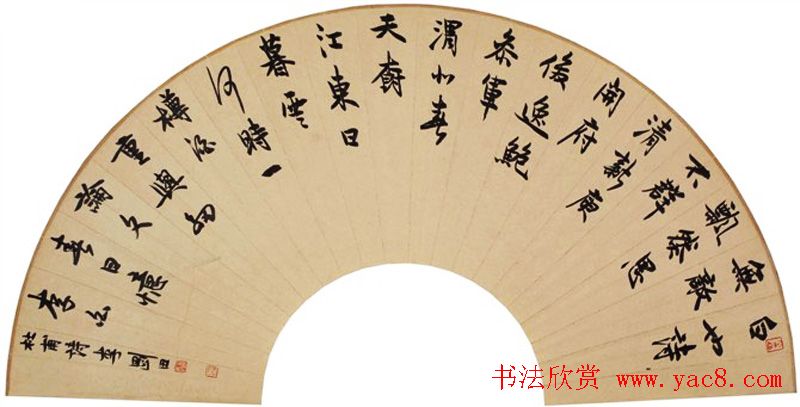 白也詩
無敵
飄然思
不群
清新庾
開府
俊逸鮑
参軍
渭北春
天樹
江東日
暮雲
何時一
樽酒
重與細
論文
春日憶
李白
杜甫詩李剛田
书法欣赏 www.yac8.com